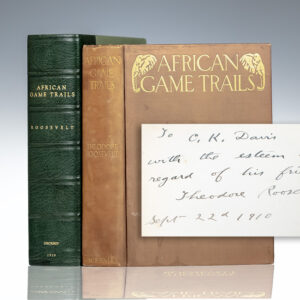 AFRICAN
GAME TRAILS
ROOSEVELT
1910
AFRICAN
GAME
TRAILS
THEODORE
ROOSEVELT
SCRIBNERS
AFRICAN
GAME TRAILS
To C. K. Davis
with the esteem
regard of his fri
Theodore Roose
Sept 22d 1910